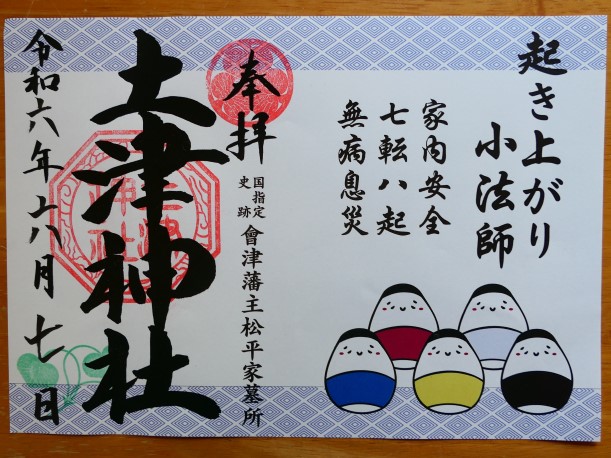 起き上がり
小法師
家内安全
七転八起
無病息災
奉拝
国指定
史跡
會津藩主松平家墓所
土津神社
令和六年六月七日